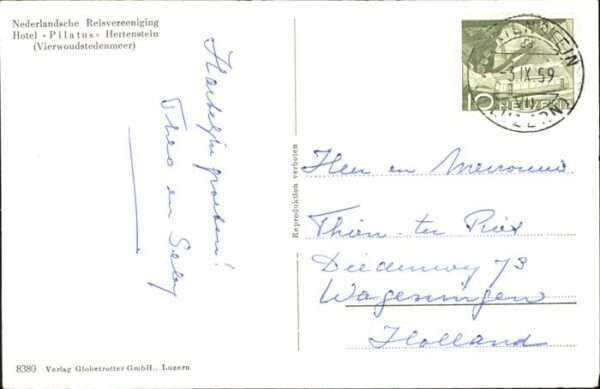 Nederlandsche Reisvereeniging
Hotel «Pilatus» Hertenstein
(Vierwoudstedenmeer)
Hartelijke groeten!
Theo en
Reproduktion verboten
10 HELVETIA
-3.IX.59
VII
(LUZERN)
Heer en Mevrouw
Thien - ter
Diedenweg 73
Wageningen
Holland
8380 Verlag Globetrotter GmbH., Luzern